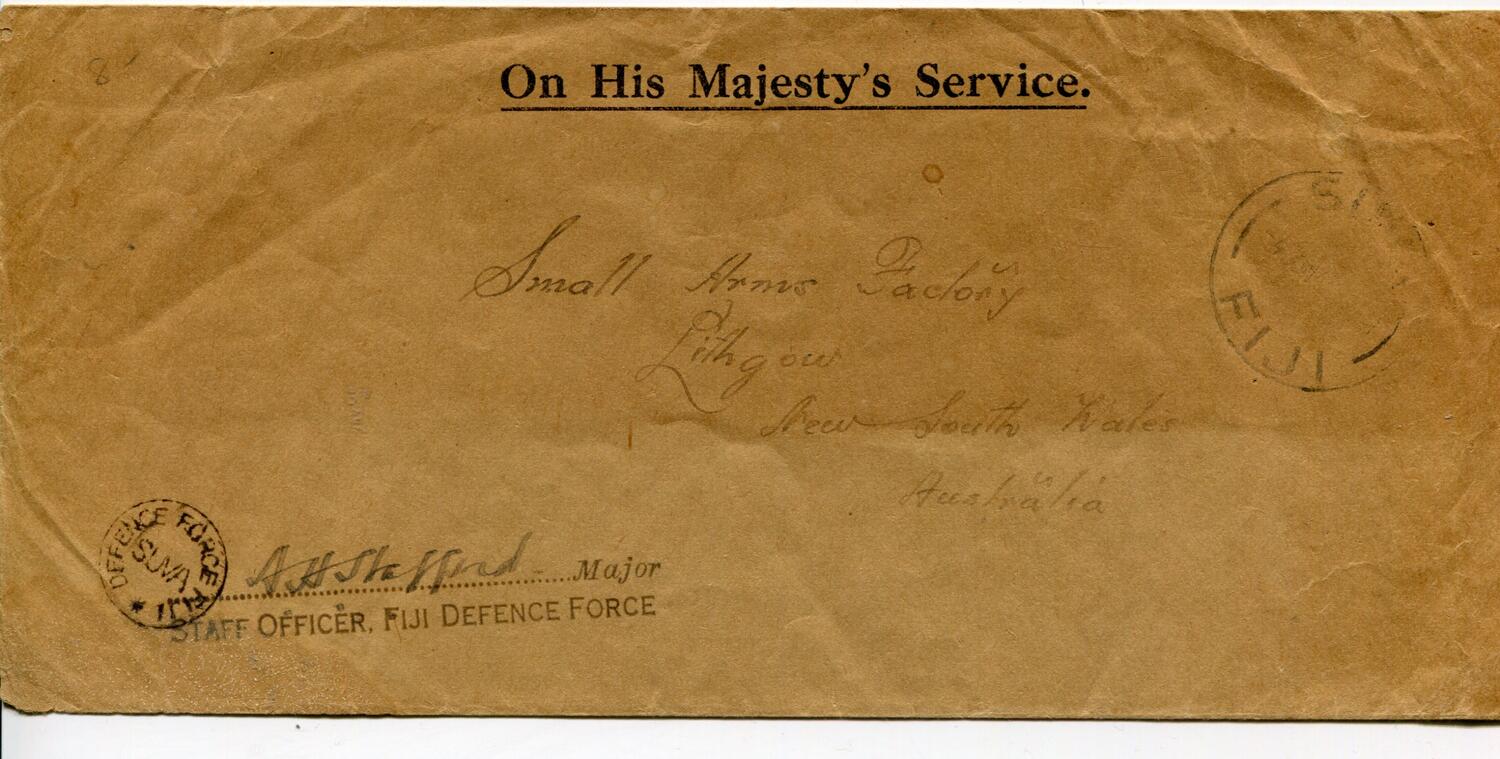 On His Majesty's Service.
8
Small Arms Factory
Lithgow
New South Wales
Australia
FIJI
DEFENCE FORCE FIJI
SUVA
A H Stafford Major
STAFF OFFICER, FIJI DEFENCE FORCE